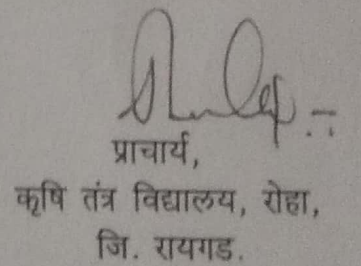 प्राचार्य,
कृषि तंत्र विद्यालय, रोहा,
जि. रायगड.